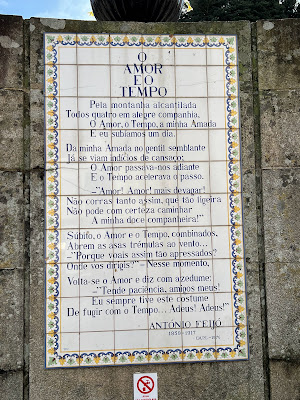 O
AMOR
E O
TEMPO
Pela montanha alcantilada
Todos quatro em alegre companhia,
O Amor, o Tempo, a minha Amada
E eu subíamos um dia.
Da minha Amada no gentil semblante
Já se viam indícios de cansaço;
O Amor passava-nos adiante
E o Tempo acelerava o passo.
–"Amor! Amor! mais devagar!
Não corras tanto assim, que tão ligeira
Não pode com certeza caminhar
A minha doce companheira!"
Súbito, o Amor e o Tempo, combinados,
Abrem as asas trémulas ao vento...
–"Porque voais assim tão apressados?
Onde vos dirigis?"– Nesse momento,
Volta-se o Amor e diz com azedume:
–"Tende paciência, amigos meus!
Eu sempre tive este costume
De fugir com o Tempo... Adeus! Adeus!"
ANTÓNIO FEIJÓ
1859-1917